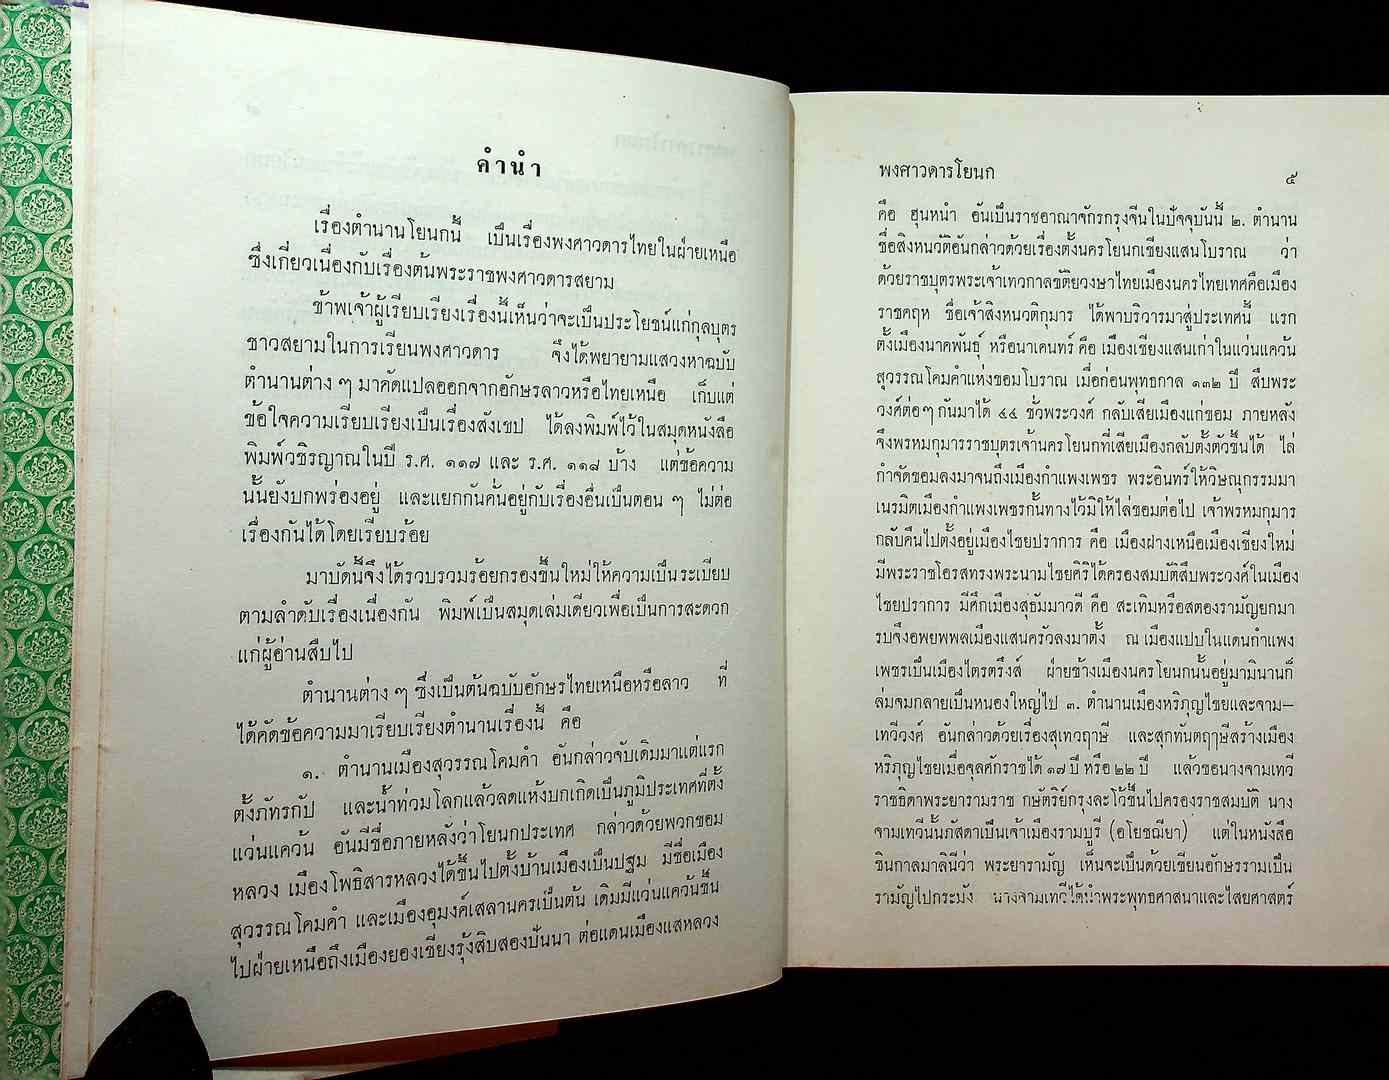 คำนำ
เรื่องตำนานโยนกนี้ เป็นเรื่องพงศาวดารไทยในฝ่ายเหนือ
ซึ่งเกี่ยวเนื่องกับเรื่องต้นพระราชพงศาวดารสยาม
ข้าพเจ้าผู้เรียบเรียงเรื่องนี้เห็นว่าจะเป็นประโยชน์แก่กุลบุตร
ชาวสยามในการเรียนพงศาวดาร จึงได้พยายามแสวงหาฉบับ
ตำนานต่าง ๆ มาคัดแปลออกจากอักษรลาวหรือไทยเหนือ เก็บแต่
ข้อใจความเรียบเรียงเป็นเรื่องสังเขป ได้ลงพิมพ์ไว้ในสมุดหนังสือ
พิมพ์วชิรญาณในปี ร.ศ. ๑๑๗ และ ร.ศ. ๑๑๘ บ้าง แต่ข้อความ
นั้นยังบกพร่องอยู่ และแยกกันคั่นอยู่กับเรื่องอื่นเป็นตอน ๆ ไม่ต่อ
เรื่องกันได้โดยเรียบร้อย
มาบัดนี้จึงได้รวบรวมร้อยกรองขึ้นใหม่ให้ความเป็นระเบียบ
ตามลำดับเรื่องเนื่องกัน พิมพ์เป็นสมุดเล่มเดียวเพื่อเป็นการสะดวก
แก่ผู้อ่านสืบไป
ตำนานต่าง ๆ ซึ่งเป็นต้นฉบับอักษรไทยเหนือหรือลาว ที่
ได้คัดข้อความมาเรียบเรียงตำนานเรื่องนี้ คือ
๑. ตำนานเมืองสุวรรณโคมคำ อันกล่าวจับเดิมมาแต่แรก
ตั้งภัทรกัป และน้ำท่วมโลกแล้วลดแห้งบกเกิดเป็นภูมิประเทศที่ตั้ง
แว่นแคว้น อันมีชื่อภายหลังว่าโยนกประเทศ กล่าวด้วยพวกขอม
หลวง เมืองโพธิสารหลวงได้ขึ้นไปตั้งบ้านเมืองเป็นปฐม มีชื่อเมือง
สุวรรณโคมคำ และเมืองอุมงค์เสลานครเป็นต้น เดิมมีแว่นแคว้นขึ้น
ไปฝ่ายเหนือถึงเมืองยองเชียงรุ้งสิบสองปันนา ต่อแดนเมืองแสหลวง
พงศาวดารโยนก ๕
คือ ฮุนหนำ อันเป็นราชอาณาจักรกรุงจีนในปัจจุบันนี้ ๒. ตำนาน
ชื่อสิงหนวัติอันกล่าวด้วยเรื่องตั้งนครโยนกเชียงแสนโบราณ ว่า
ด้วยราชบุตรพระเจ้าเทวกาลขัติยวงษาไทยเมืองนครไทยเทศคือเมือง
ราชคฤห ชื่อเจ้าสิงหนวติกุมาร ได้พาบริวารมาสู่ประเทศนี้ แรก
ตั้งเมืองนาคพันธุ์ หรือนาเคนทร์ คือ เมืองเชียงแสนเก่าในแว่นแคว้น
สุวรรณโคมคำแห่งขอมโบราณ เมื่อก่อนพุทธกาล ๑๓๒ ปี สืบพระ
วงศ์ต่อๆ กันมาได้ ๔๔ ชั่วพระวงศ์ กลับเสียเมืองแก่ขอม ภายหลัง
จึงพรหมกุมารราชบุตรเจ้านครโยนกที่เสียเมืองกลับตั้งตัวขึ้นได้ ไล่
กำจัดขอมลงมาจนถึงเมืองกำแพงเพชร พระอินทร์ให้วิษณุกรรมมา
เนรมิตเมืองกำแพงเพชรกั้นทางไว้มิให้ไล่ขอมต่อไป เจ้าพรหมกุมาร
กลับคืนไปตั้งอยู่เมืองไชยปราการ คือ เมืองฝางเหนือเมืองเชียงใหม่
มีพระราชโอรสทรงพระนามไชยศิริได้ครองสมบัติสืบพระวงศ์ในเมือง
ไชยปราการ มีศึกเมืองสุธัมมาวดี คือ สะเทิมหรือสตองรามัญยกมา
รบจึงอพยพพลเมืองแสนครัวลงมาตั้ง ณ เมืองแปปในแดนกำแพง
เพชรเป็นเมืองไตรตรึงส์ ฝ่ายช้างเมืองนครโยนกนั้นอยู่มามินานก็
ล่มจมกลายเป็นหนองใหญ่ไป ๓. ตำนานเมืองหริภุญไชยและจาม—
เทวีวงศ์ อันกล่าวด้วยเรื่องสุเทวฤาษี และสุกทันตฤๅษีสร้างเมือง
หริภุญไชยเมื่อจุลศักราชได้ ๑๗ ปี หรือ ๒๒ ปี แล้วขอนางจามเทวี
ราชธิดาพระยารามราช กษัตริย์กรุงละโว้ขึ้นไปครองราชสมบัติ นาง
จามเทวีนั้นภัสดาเป็นเจ้าเมืองรามบุรี (อโยชฌิยา) แต่ในหนังสือ
ชินกาลมาลินีว่า พระยารามัญ เห็นจะเป็นด้วยเขียนอักษรรามเป็น
รามัญไปกระมัง นางจามเทวีได้นำพระพุทธศาสนาและไสยศาสตร์